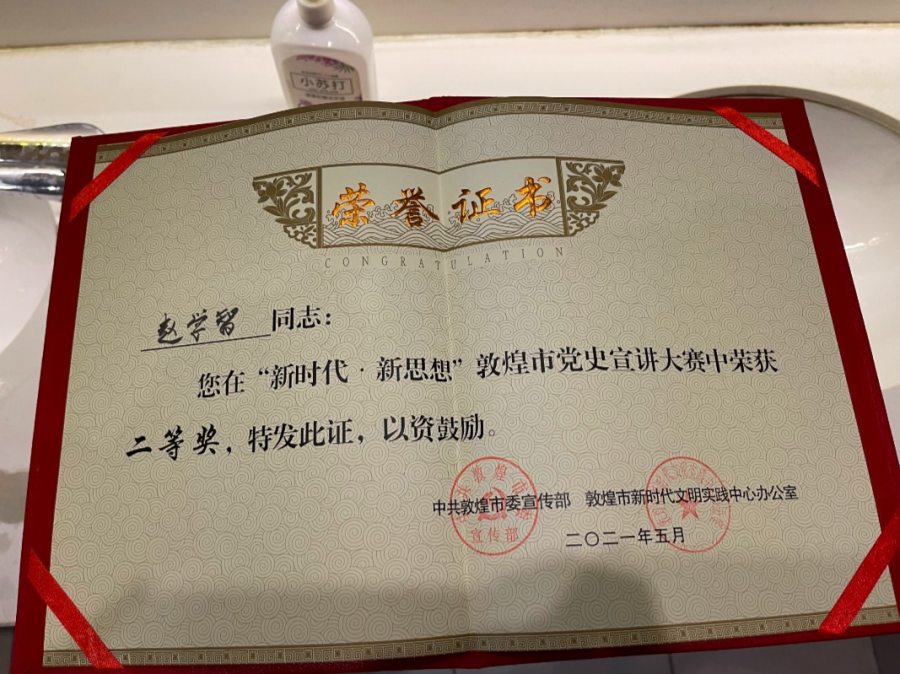 小苏打
荣誉证书
CONGRATULATION
赵学智 同志：
您在“新时代·新思想”敦煌市党史宣讲大赛中荣获
二等奖，特发此证，以资鼓励。
中共敦煌市委宣传部 敦煌市新时代文明实践中心办公室
二〇二一年五月
中共敦煌市委
宣传部